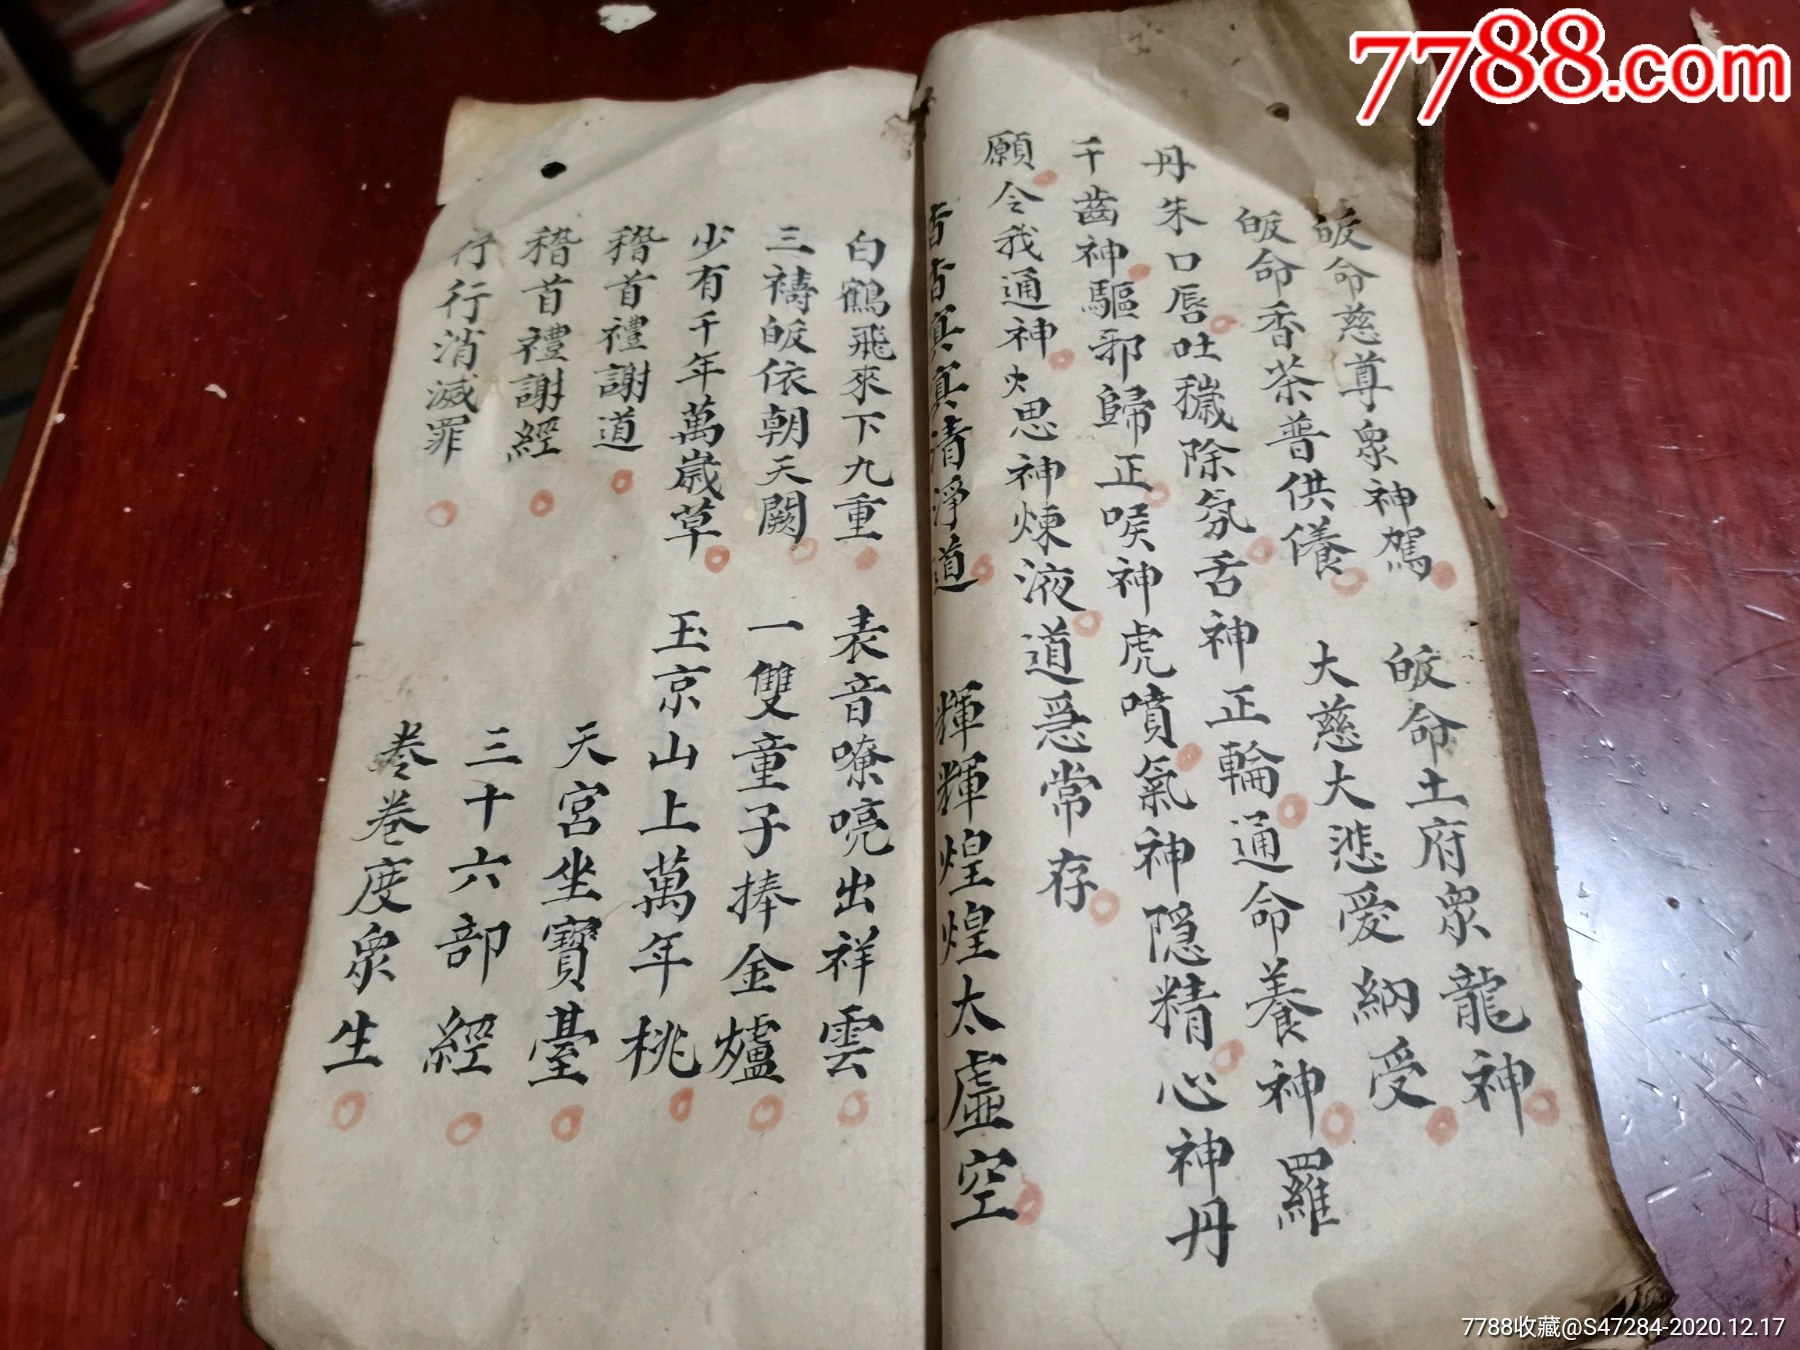 7788.com
皈命慈尊衆神駕 皈命土府衆龍神
皈命香茶普供養 大慈大悲愛納受
丹朱口唇吐穢除氛舌神正輪通命養神羅
千齒神驅邪歸正喉神虎噴氣神隱精心神丹
願令我通神 思神煉液道爲常存
杳杳真真清淨道 輝輝煌煌太虛空
白鶴飛來下九重 表音嘹喨出祥雲
三禱皈依朝天闕 一雙童子捧金爐
少有千年萬歲草 玉京山上萬年桃
稽首禮謝道 天宮坐寶臺
稽首禮謝經 三十六部經
行行消滅罪 卷卷度衆生
7788收藏@S47284-2020.12.17